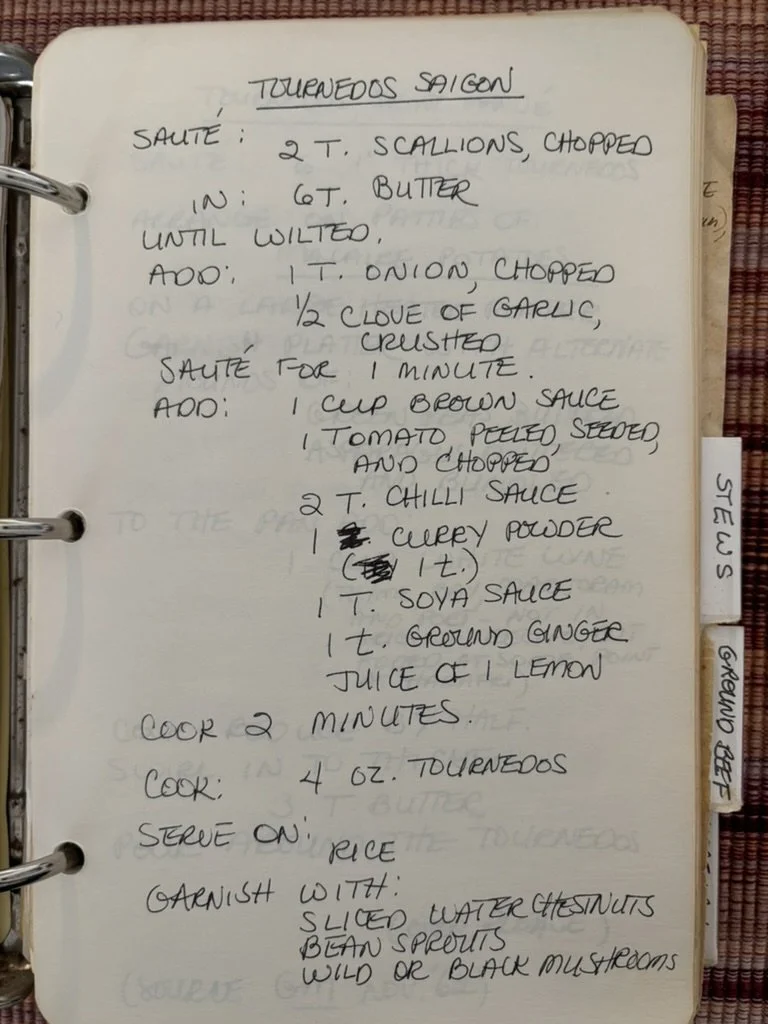 TOURNEDOS SAIGON
SAUTÉ: 2 T. SCALLIONS, CHOPPED
IN: 6T. BUTTER
UNTIL WILTED.
ADD: 1 T. ONION, CHOPPED
1/2 CLOVE OF GARLIC,
CRUSHED
SAUTÉ FOR 1 MINUTE.
ADD: 1 CUP BROWN SAUCE
1 TOMATO, PEELED, SEEDED,
AND CHOPPED
2 T. CHILLI SAUCE
1 CURRY POWDER
(1 t.)
1 T. SOYA SAUCE
1 t. GROUND GINGER
JUICE OF 1 LEMON
COOK 2 MINUTES.
COOK: 4 OZ. TOURNEDOS
SERVE ON:
RICE
GARNISH WITH:
SLICED WATER CHESTNUTS
BEAN SPROUTS
WILD OR BLACK MUSHROOMS
STEWS
GROUND BEEF